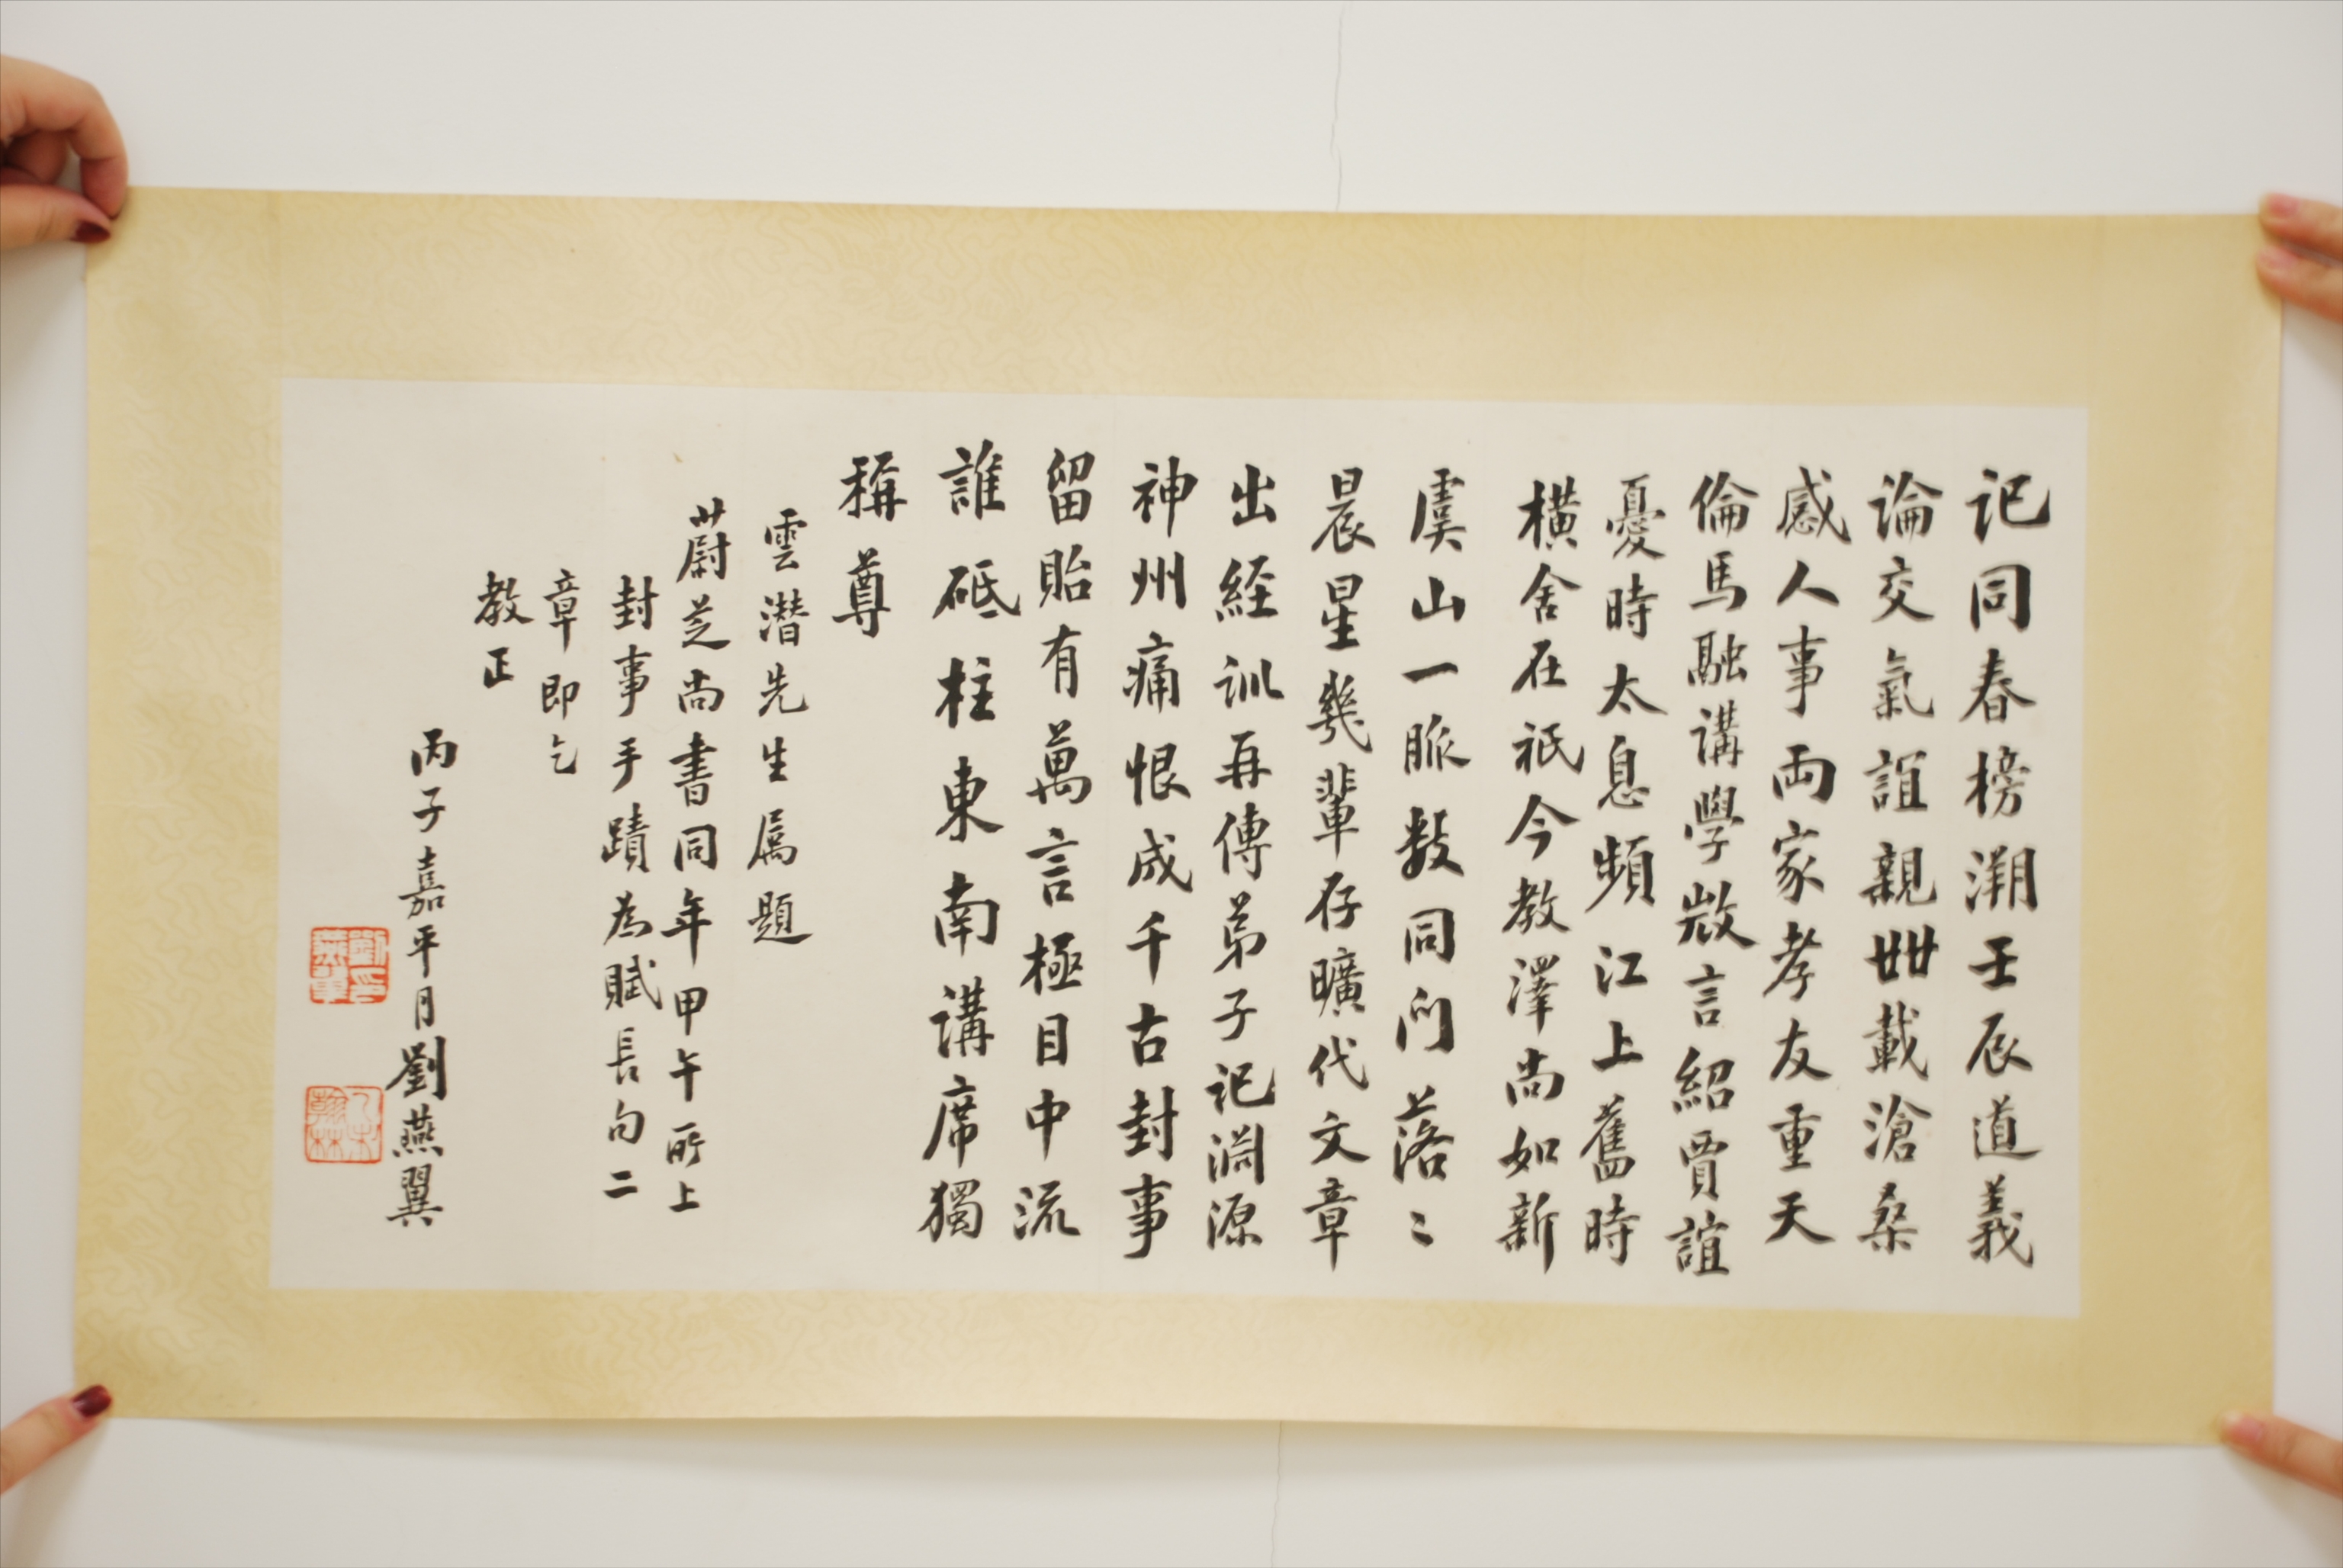 記同春榜溯壬辰道義
論交氣誼親卌載滄桑
感人事兩家孝友重天
倫馬融講學微言紹賈誼
憂時太息頻江上舊時
橫舍在祇今教澤尚如新
虞山一脈數同門落〻
晨星幾輩存曠代文章
出經訓再傳弟子記淵源
神州痛恨成千古封事
留貽有萬言極目中流
誰砥柱東南講席獨
稱尊
雲潛先生屬題
蔚芝尚書同年甲午所上
封事手蹟為賦長句二
章即乞
教正
丙子嘉平月劉燕翼
劉印燕翼